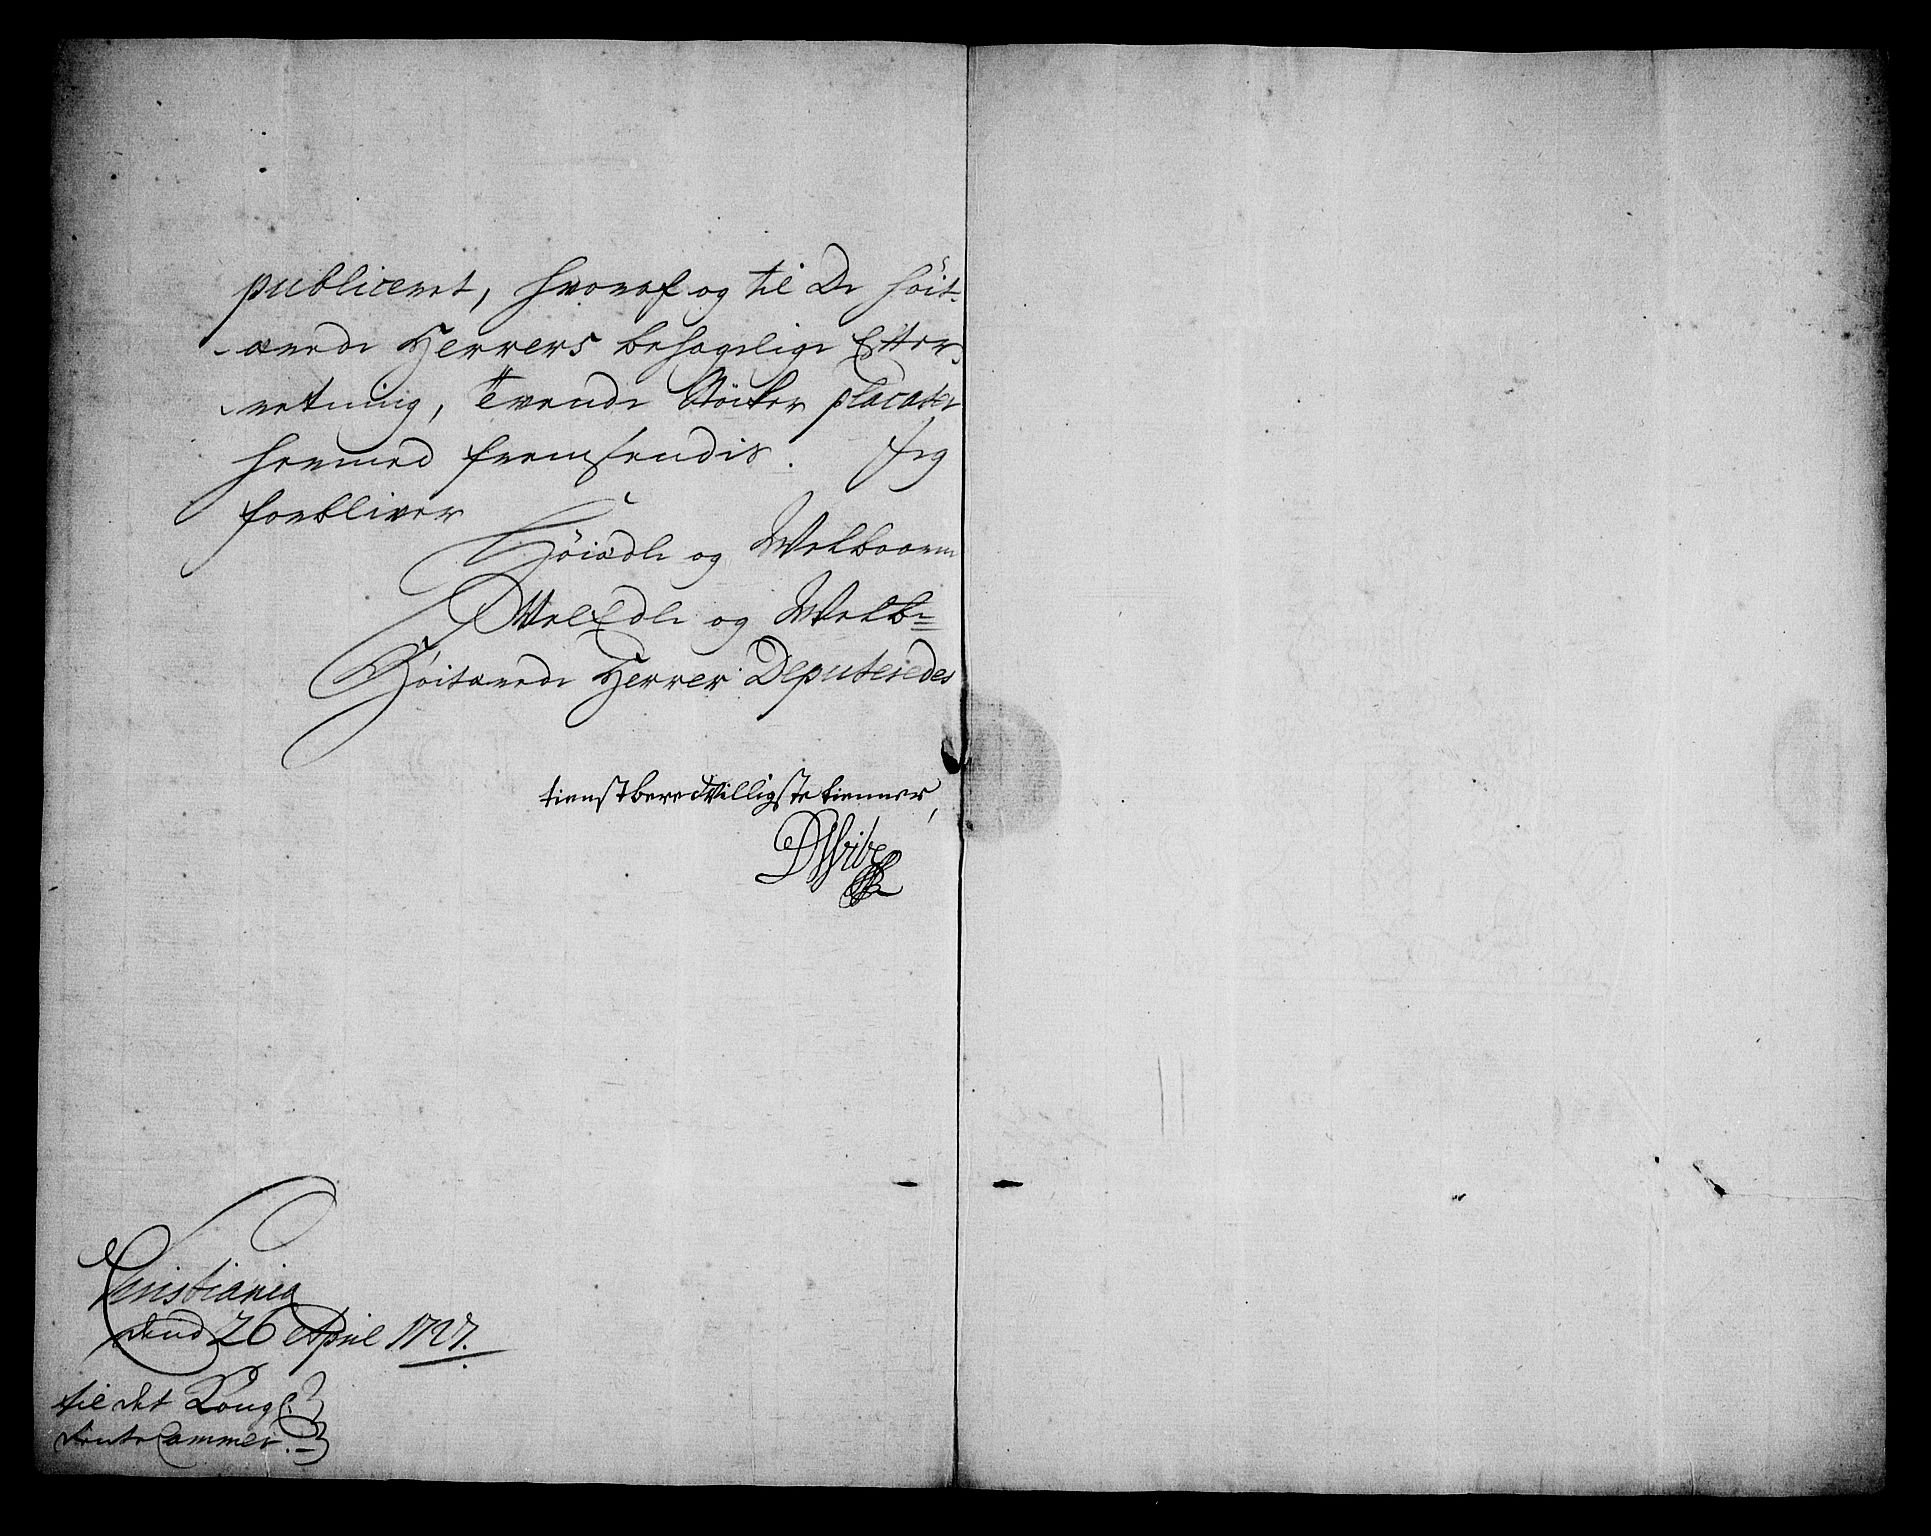 publiceret, hvoraf og til De höit-
ærede Herrers behagelige Efter-
retning, Tvende Stöcker placater
hermed fremsendis. Jeg
forbliver
Höiædle og Welbaarne
WelEdle og Welb:
Höitærede Herrer Deputeredes
tienstberedWilligste tienner,
DWibe
Christiania
dend 26 April 1727.
til det Kongl.
Rente Cammer.